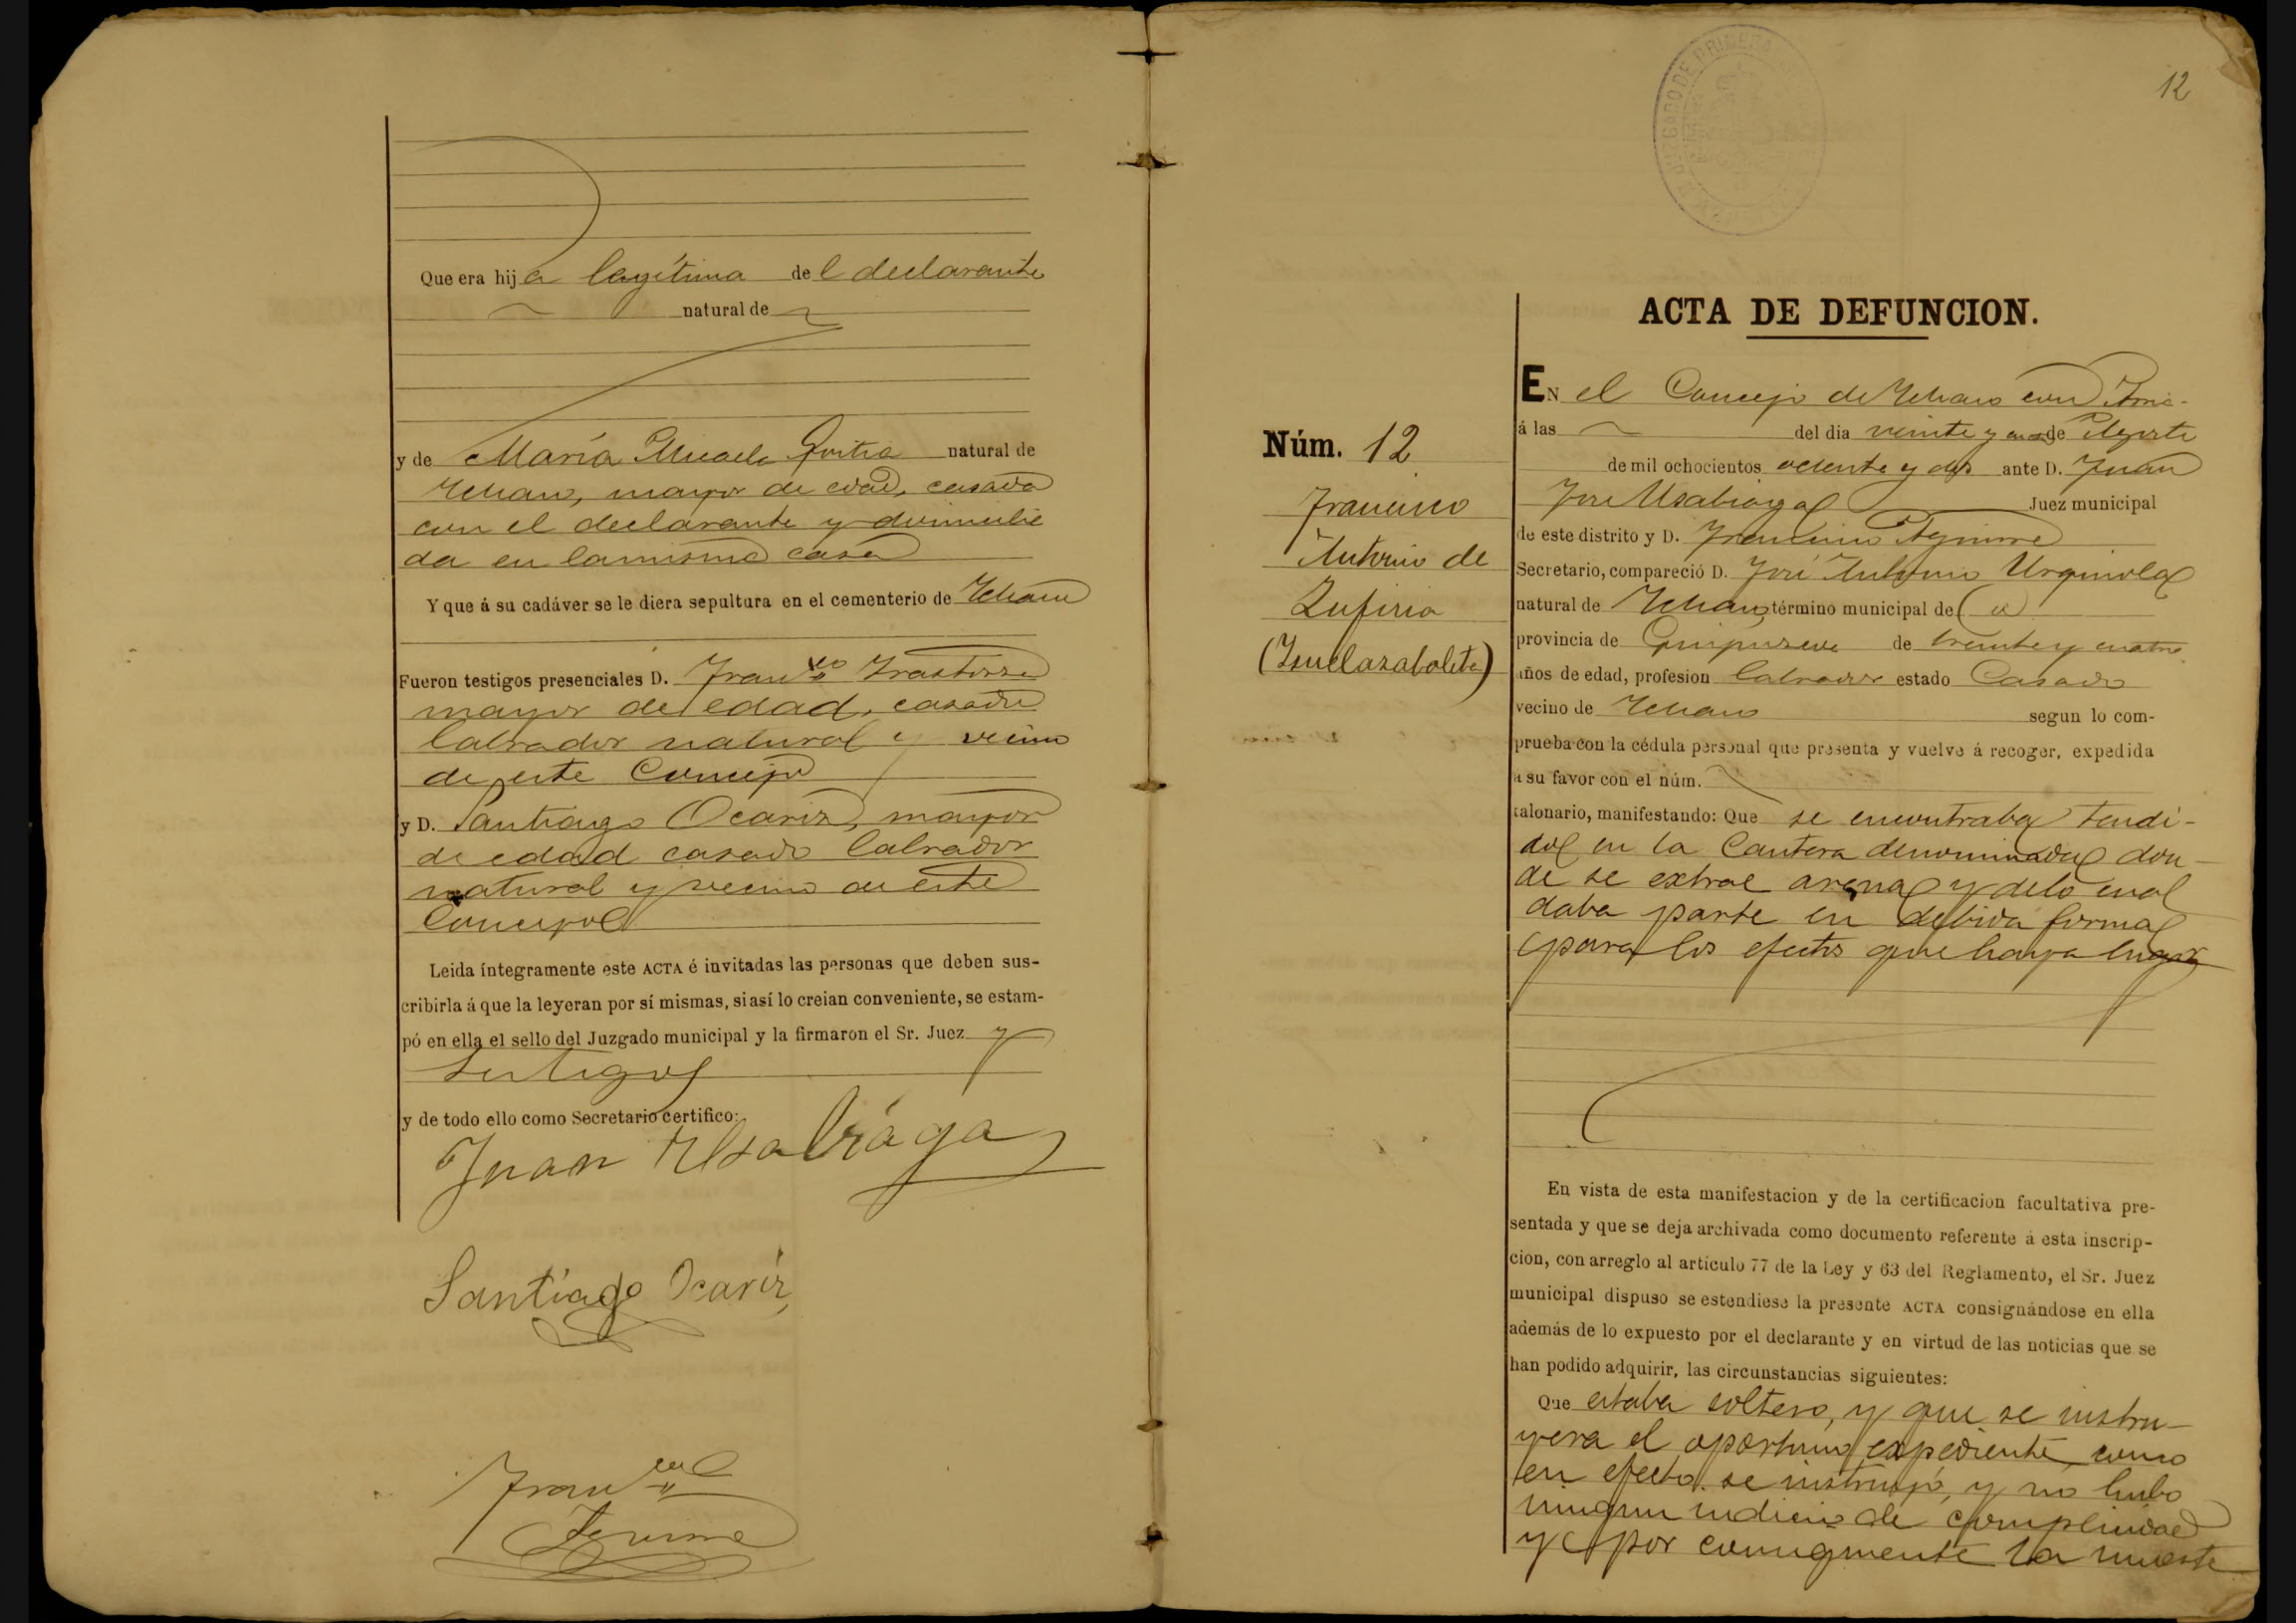 Que era hija legítima del declarante
natural de
y de María Micaela natural de
Ichaso, mayor de edad, casada
con el declarante y domicilia
da en la misma casa
Y que á su cadáver se le diera sepultura en el cementerio de Ichaso
Fueron testigos presenciales D. Franco Irastorza
mayor de edad, casado
labrador natural y vecino
de este Concejo
y D. Santiago Ocariz, mayor
de edad casado labrador
natural y vecino de este
Concejo
Leida íntegramente este ACTA é invitadas las personas que deben sus-
cribirla á que la leyeran por sí mismas, si así lo creian conveniente, se estam-
pó en ella el sello del Juzgado municipal y la firmaron el Sr. Juez y
testigos
y de todo ello como Secretario certifico:
Juan Usabiaga
Santiago Ocariz
Franco
Aguirre
12
JUZGADO DE PRIMERA
ACTA DE DEFUNCION.
Núm. 12
Francisco
Antonio de
Zufiria
EN el Concejo de Ichaso con
á las del dia veinte y de Agosto
de mil ochocientos ochenta y dos ante D. Juan
José Usabiaga Juez municipal
de este distrito y D. Francisco Aguirre
Secretario, compareció D. José Antonio Urquiola
natural de Ichaso, término municipal de id
provincia de Guipuzcoa de treinta y cuatro
años de edad, profesion labrador estado Casado
vecino de Ichaso segun lo com-
prueba con la cédula personal que presenta y vuelve á recoger, expedida
á su favor con el núm.
talonario, manifestando: Que se encontraba tendi-
do en la Cantera denominada don-
de se extrae arena y de lo cual
daba parte en debida forma
para los efectos que haya lugar
En vista de esta manifestacion y de la certificacion facultativa pre-
sentada y que se deja archivada como documento referente á esta inscrip-
cion, con arreglo al artículo 77 de la Ley y 63 del Reglamento, el Sr. Juez
municipal dispuso se estendiese la presente ACTA consignándose en ella
además de lo expuesto por el declarante y en virtud de las noticias que se
han podido adquirir, las circunstancias siguientes:
Que estaba soltero, y que se instru-
yera el oportuno expediente, como
en efecto se instruyó, y no hubo
ningun indicio de complicidad
y por consiguiente la muerte